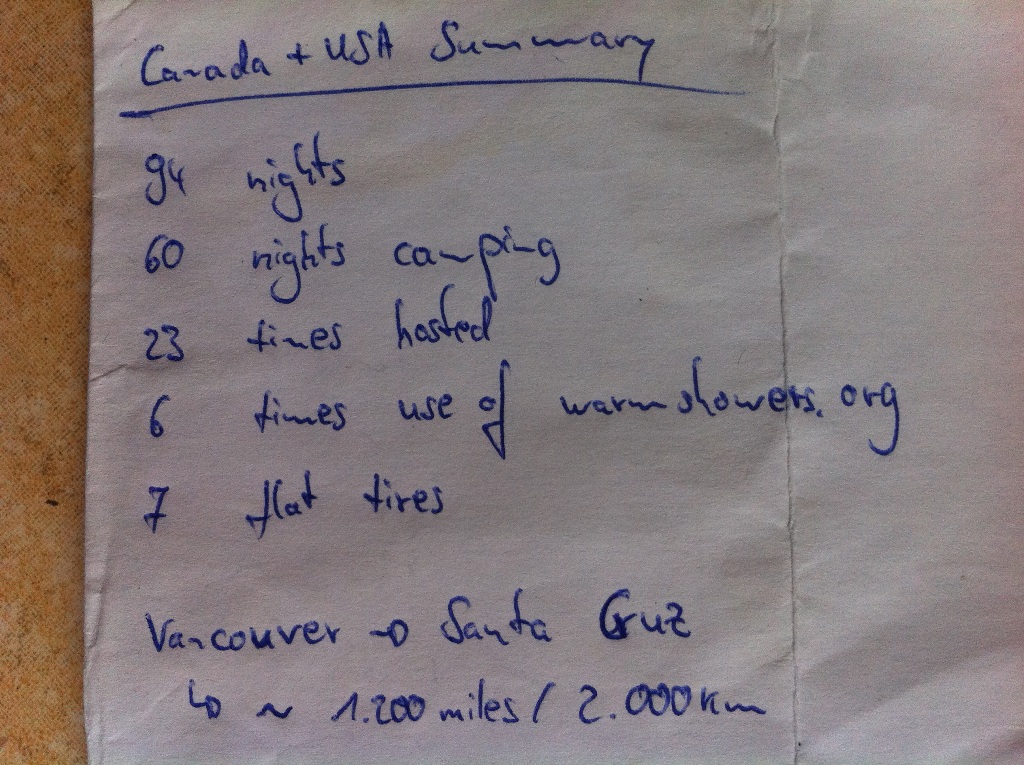 Canada + USA Summary
94 nights
60 nights camping
23 times hosted
6 times use of warmshowers.org
7 flat tires
Vancouver → Santa Cruz
↳ ~ 1.200 miles / 2.000 km